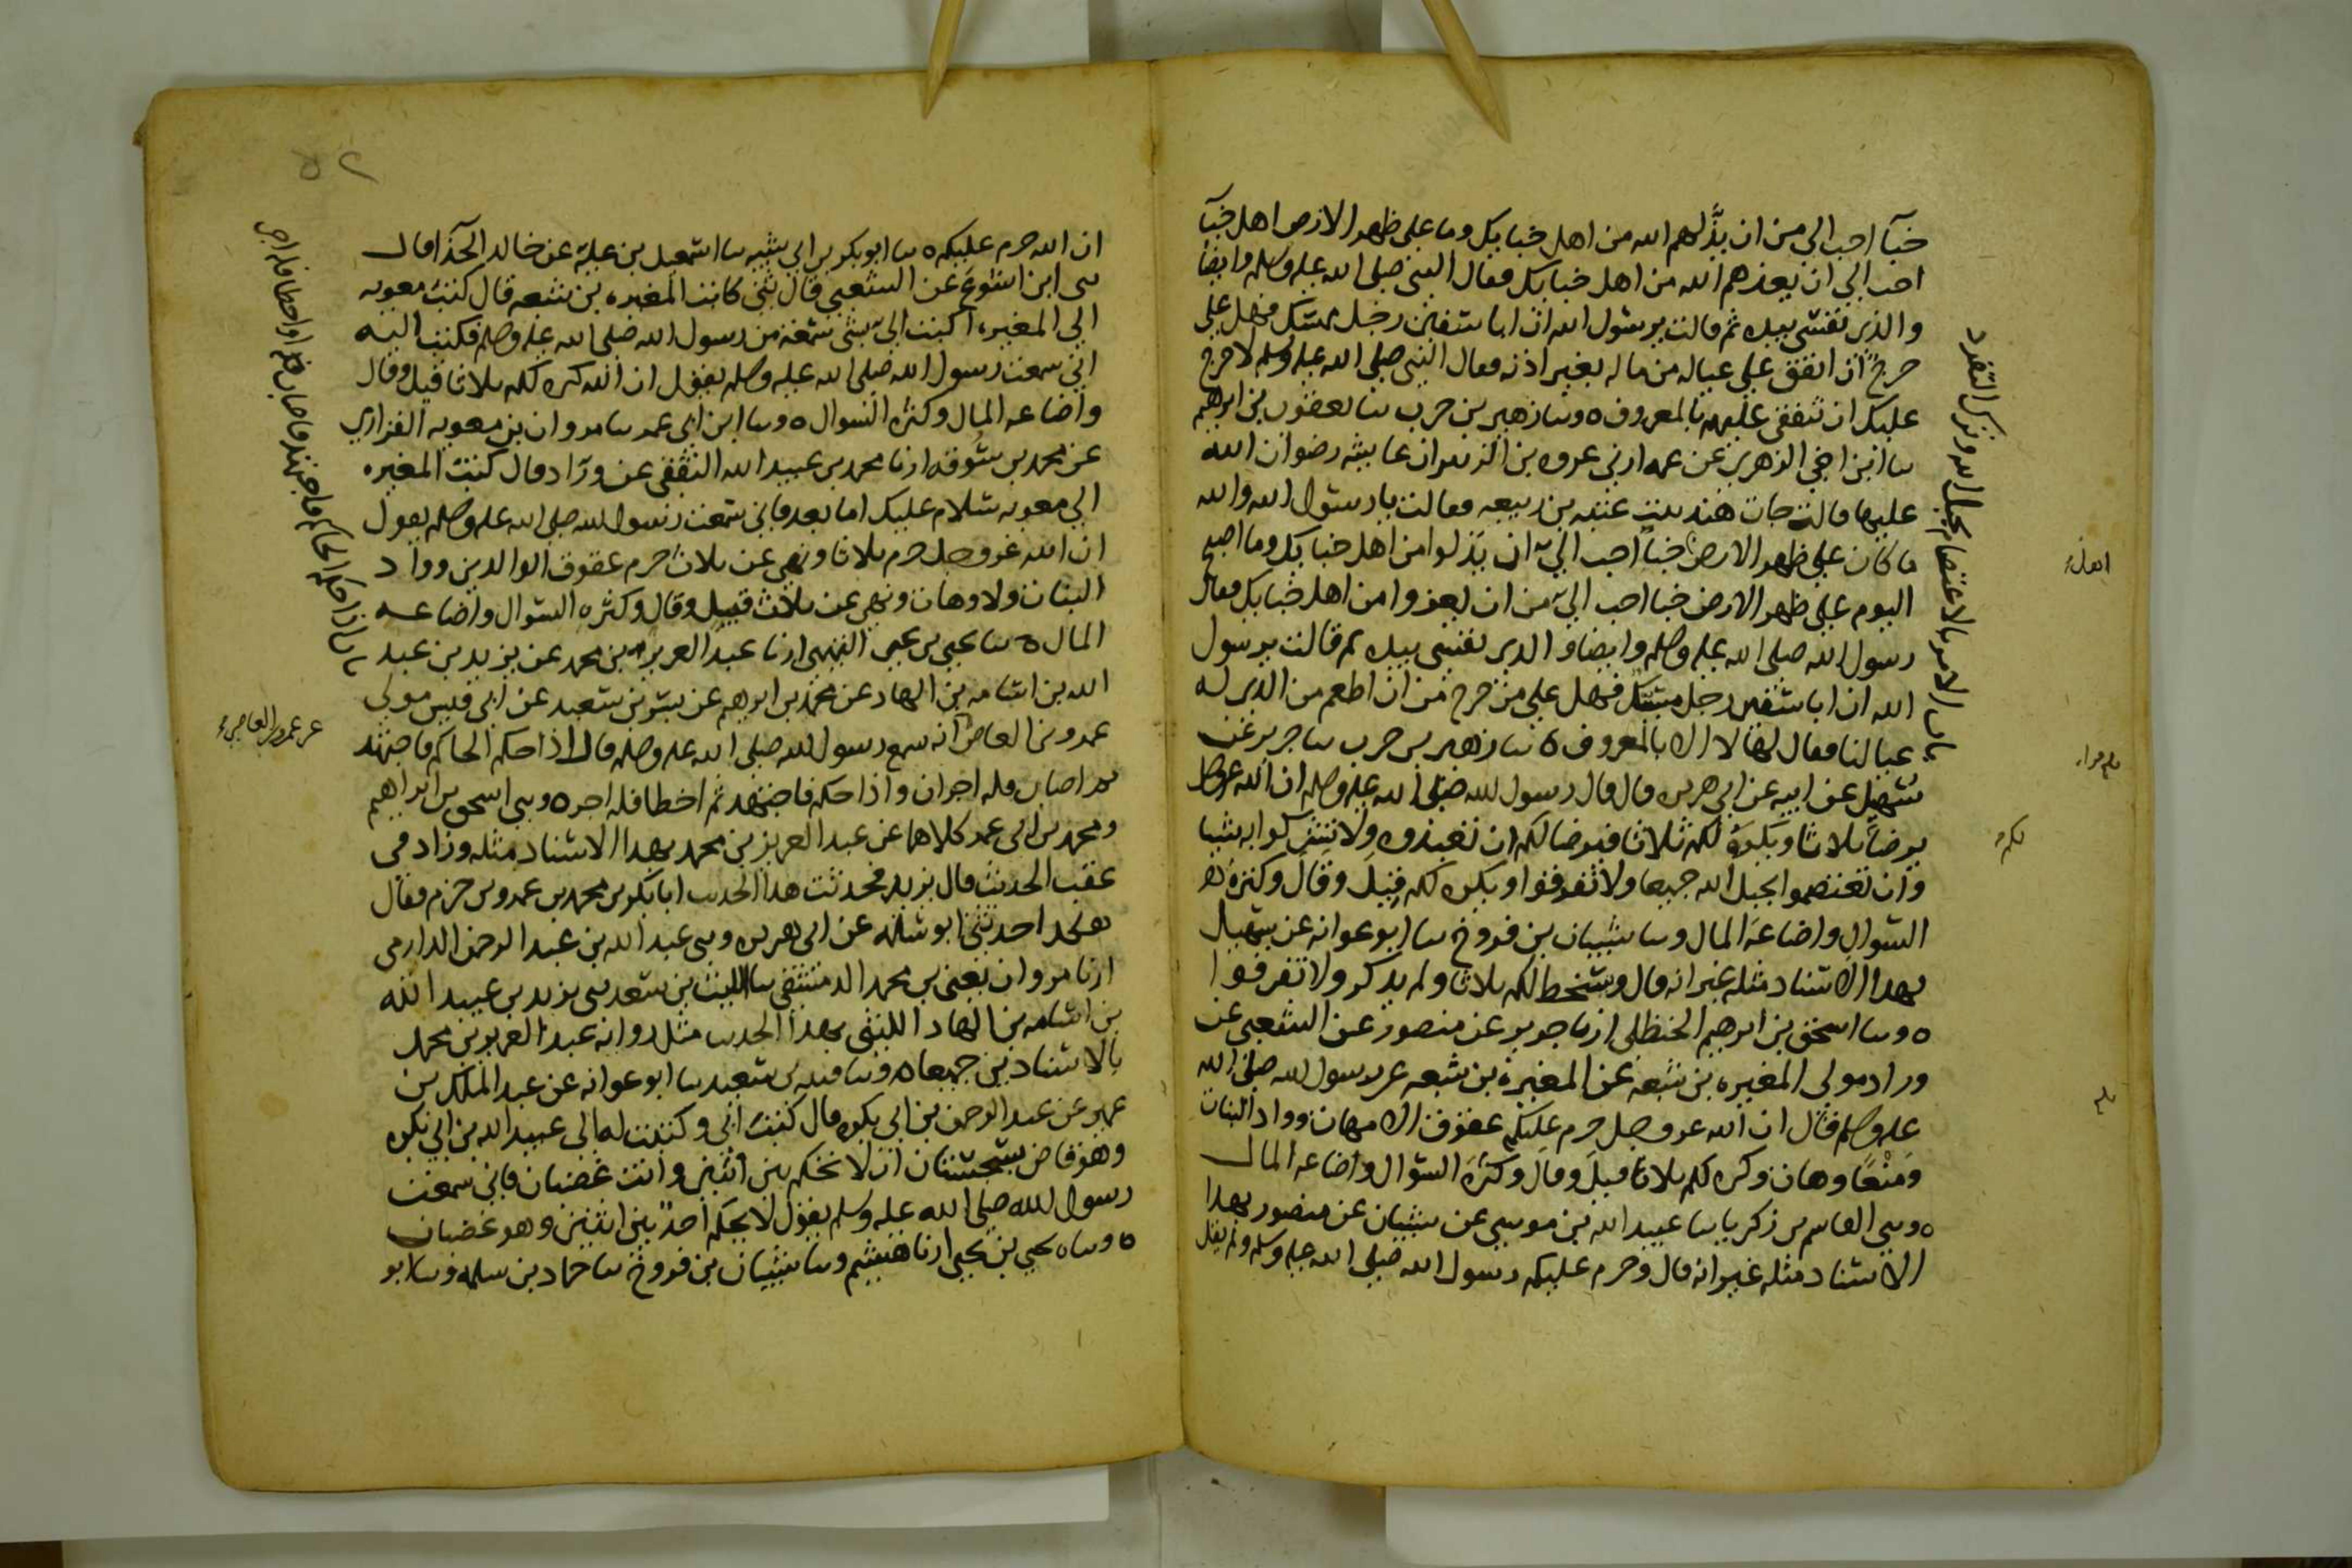 خبآ احب الي من ان يذلهم الله من اهل خبايك وما على ظهر الارض اهل خبآ
احب الي ان يعزهم الله من اهل خبايك فقال النبي صلى الله عليه وسلم وايضا
والذي نفسي بيده ثم قالت يرسول الله ان ابا سفين رجل ممسك فهل علي
حرج ان انفق على عياله من ماله بغير اذنه فقال النبي صلى الله عليه وسلم لا حرج
عليك ان تنفقي عليهم بالمعروف ٥ وسا زهير بن حرب سا يعقوب بن ابرهيم
سا ابن اخي الزهري عن عمه ارني عروه بن الزبير ان عايشه رضوان الله
عليها قالت جات هند بنت عتبه بن ربيعه فقالت يا رسول الله والله
ما كان على ظهر الارض خبآ احب الي ان يذلوا من اهل خبايك وما اصبح
اليوم على ظهر الارض خبا احب الي من ان يعزوا من اهل خبايك فقال
رسول الله صلى الله عليه وسلم وايضا والذي نفسي بيده ثم قالت يرسول
الله ان ابا سفين رجل مسيك فهل علي من حرج من ان اطعم من الذي له
عيالنا فقال لها لا الا بالمعروف ٥ سا زهير بن حرب سا جرير عن
سهيل عن ابيه عن ابي هريره قال قال رسول الله صلى الله عليه وسلم ان الله عز وجل
يرضا ثلاثا ويكره لكم ثلاثا فيرضا لكم ان تعبدوه ولا تشركوا به شيا
وان تعتصموا بحبل الله جميعا ولا تفرقوا ويكره لكم قيل وقال وكثرة
السوال واضاعة المال وسا شيبان بن فروخ سا ابو عوانه عن سهيل
بهذا الاسناد مثله غير انه قال ويسخط لكم ثلاثا ولم يذكر ولا تفرقوا
٥ وسا اسحق بن ابرهيم الحنظلي ارنا جرير عن منصور عن الشعبي عن
وراد مولى المغيره بن شعبه عن المغيرة بن شعبه عن رسول الله صلى الله
عليه وسلم قال ان الله عز وجل حرم عليكم عقوق الامهات وواد البنات
ومنعا وهات وكره لكم ثلاثا قيل وقال وكثرة السؤال واضاعه المال
٥ وسى القاسم بن زكريا سا عبيد الله بن موسى عن شيبان عن منصور بهذا
الاسناد مثله غير انه قال وحرم عليكم رسول الله صلى الله عليه وسلم ولم يقل
باب الامر بالاعتصام بحبل الله وترك التفرد
يكره
٥٢
ان الله حرم عليكم ٥ سا ابو بكر بن ابي شيبه سا اسمعيل بن عليه عن خالد الحذآ قال
سى ابن اشوع عن الشعبي قال ثنى كاتب المغيره بن شعبه قال كتب معويه
الي المغيره اكتب الي بشي سمعته من رسول الله صلى الله عليه وسلم فكتب اليه
اني سمعت رسول الله صلى الله عليه وسلم يقول ان الله كره لكم ثلاثا قيل وقال
واضاعه المال وكثره السوال ٥ وسا ابن ابي عمر سا مروان بن معويه الفزاري
عن محمد بن سوقه ارنا محمد بن عبيد الله الثقفي عن وراد قال كتب المغيره
الي معويه سلام عليك اما بعد فاني سمعت رسول الله صلى الله عليه وسلم يقول
ان الله عز وجل حرم ثلاثا ونهى عن ثلاث حرم عقوق الوالدين وواد
البنات ولا وهات ونهى عن ثلاث قيل وقال وكثره السوال واضاعه
المال ٥ سا يحيى بن يحيى التميمي ارنا عبد العزيز بن محمد عن يزيد بن عبد
الله بن اسامه بن الهاد عن محمد بن ابرهيم عن بسر بن سعيد عن ابي قيس مولى
عمرو بن العاص انه سمع رسول الله صلى الله عليه وسلم قال اذا حكم الحاكم فاجتهد
ثم اصاب فله اجران واذا حكم فاجتهد ثم اخطا فله اجر ٥ وسى اسحق بن ابراهيم
ومحمد بن ابي عمر كلاهما عن عبد العزيز بن محمد بهذا الاسناد مثله وزاد في
عقب الحديث قال يزيد فحدثت هذا الحديث ابا بكر بن محمد بن عمرو بن حزم فقال
هكذا حدثني ابو سلمه عن ابي هريره وسى عبد الله بن عبد الرحمن الدارمي
ارنا مروان يعني بن محمد الدمشقي سا الليث بن سعد سى يزيد بن عبيد الله
بن اسامه بن الهاد الليثي بهذا الحديث مثل روايه عبد العزيز بن محمد
بالاسنادين جميعا ٥ وسا قتيبه بن سعيد سا ابو عوانه عن عبد الملك بن
عمير عن عبد الرحمن بن ابي بكره قال كتب ابي وكتبت له الى عبيد الله بن ابي بكره
وهو قاض بسجستان ان لا تحكم بين اثنين وانت غضبان فاني سمعت
رسول الله صلى الله عليه وسلم يقول لا يحكم احد بين اثنين وهو غضبان
٥ وساه يحيى بن يحيى ارنا هشيم وسا شيبان بن فروخ سا حماد بن سلمه وسا ابو
باب اذا حكم الحاكم فاجتهد فاصاب او اخطا فله اجر
عن عمرو بن العاصي